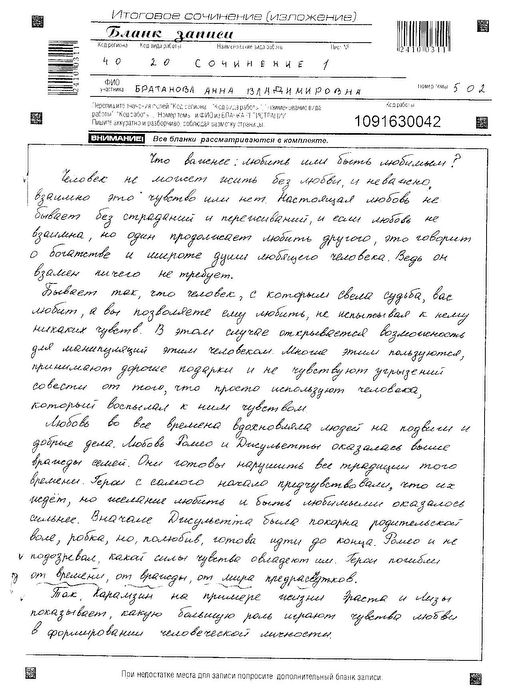 Итоговое сочинение (изложение)
Бланк записи
Код региона Код вида работы Наименование вида работы Лист №
2410031
2410031
40 20 СОЧИНЕНИЕ 1
ФИО участника БРАТАНОВА АННА ВЛАДИМИРОВНА Номер темы 502
Перепишите значения полей "Код региона", "Код вида работы", "Наименование вида
работы", "Код работы", "Номер темы" и ФИО из БЛАНКА РЕГИСТРАЦИИ.
Пишите аккуратно и разборчиво, соблюдая разметку страницы.
Код работы
1091630042
ВНИМАНИЕ! Все бланки рассматриваются в комплекте.
Что важнее: любить или быть любимым?
Человек не может жить без любви, и неважно,
взаимно это чувство или нет. Настоящая любовь не
бывает без страданий и переживаний, и если любовь не
взаимна, но один продолжает любить другого, это говорит
о богатстве и широте души любящего человека. Ведь он
взамен ничего не требует.
Бывает так, что человек, с которым свела судьба, вас
любит, а вы позволяете ему любить, не испытывая к нему
никаких чувств. В этом случае открывается возможность
для манипуляций этим человеком. Многие этим пользуются,
принимают дорогие подарки и не чувствуют угрызений
совести от того, что просто используют человека,
который воспылал к ним чувством
Любовь во все времена вдохновляла людей на подвиги и
добрые дела. Любовь Ромео и Джульетты оказалась выше
вражды семей. Они готовы нарушить все традиции того
времени. Герои с самого начала предчувствовали, что их
ждёт, но желание любить и быть любимыми оказалось
сильнее. Вначале Джульетта была покорна родительской
воле, робка, но, полюбив, готова идти до конца. Ромео и не
подозревал, какой силы чувства овладеют им. Герои погибли
от времени, от вражды, от мира предрассудков.
Так, Карамзин на примере жизни Эраста и Лизы
показывает, какую большую роль играют чувства любви
в формировании человеческой личности.
При недостатке места для записи попросите дополнительный бланк записи